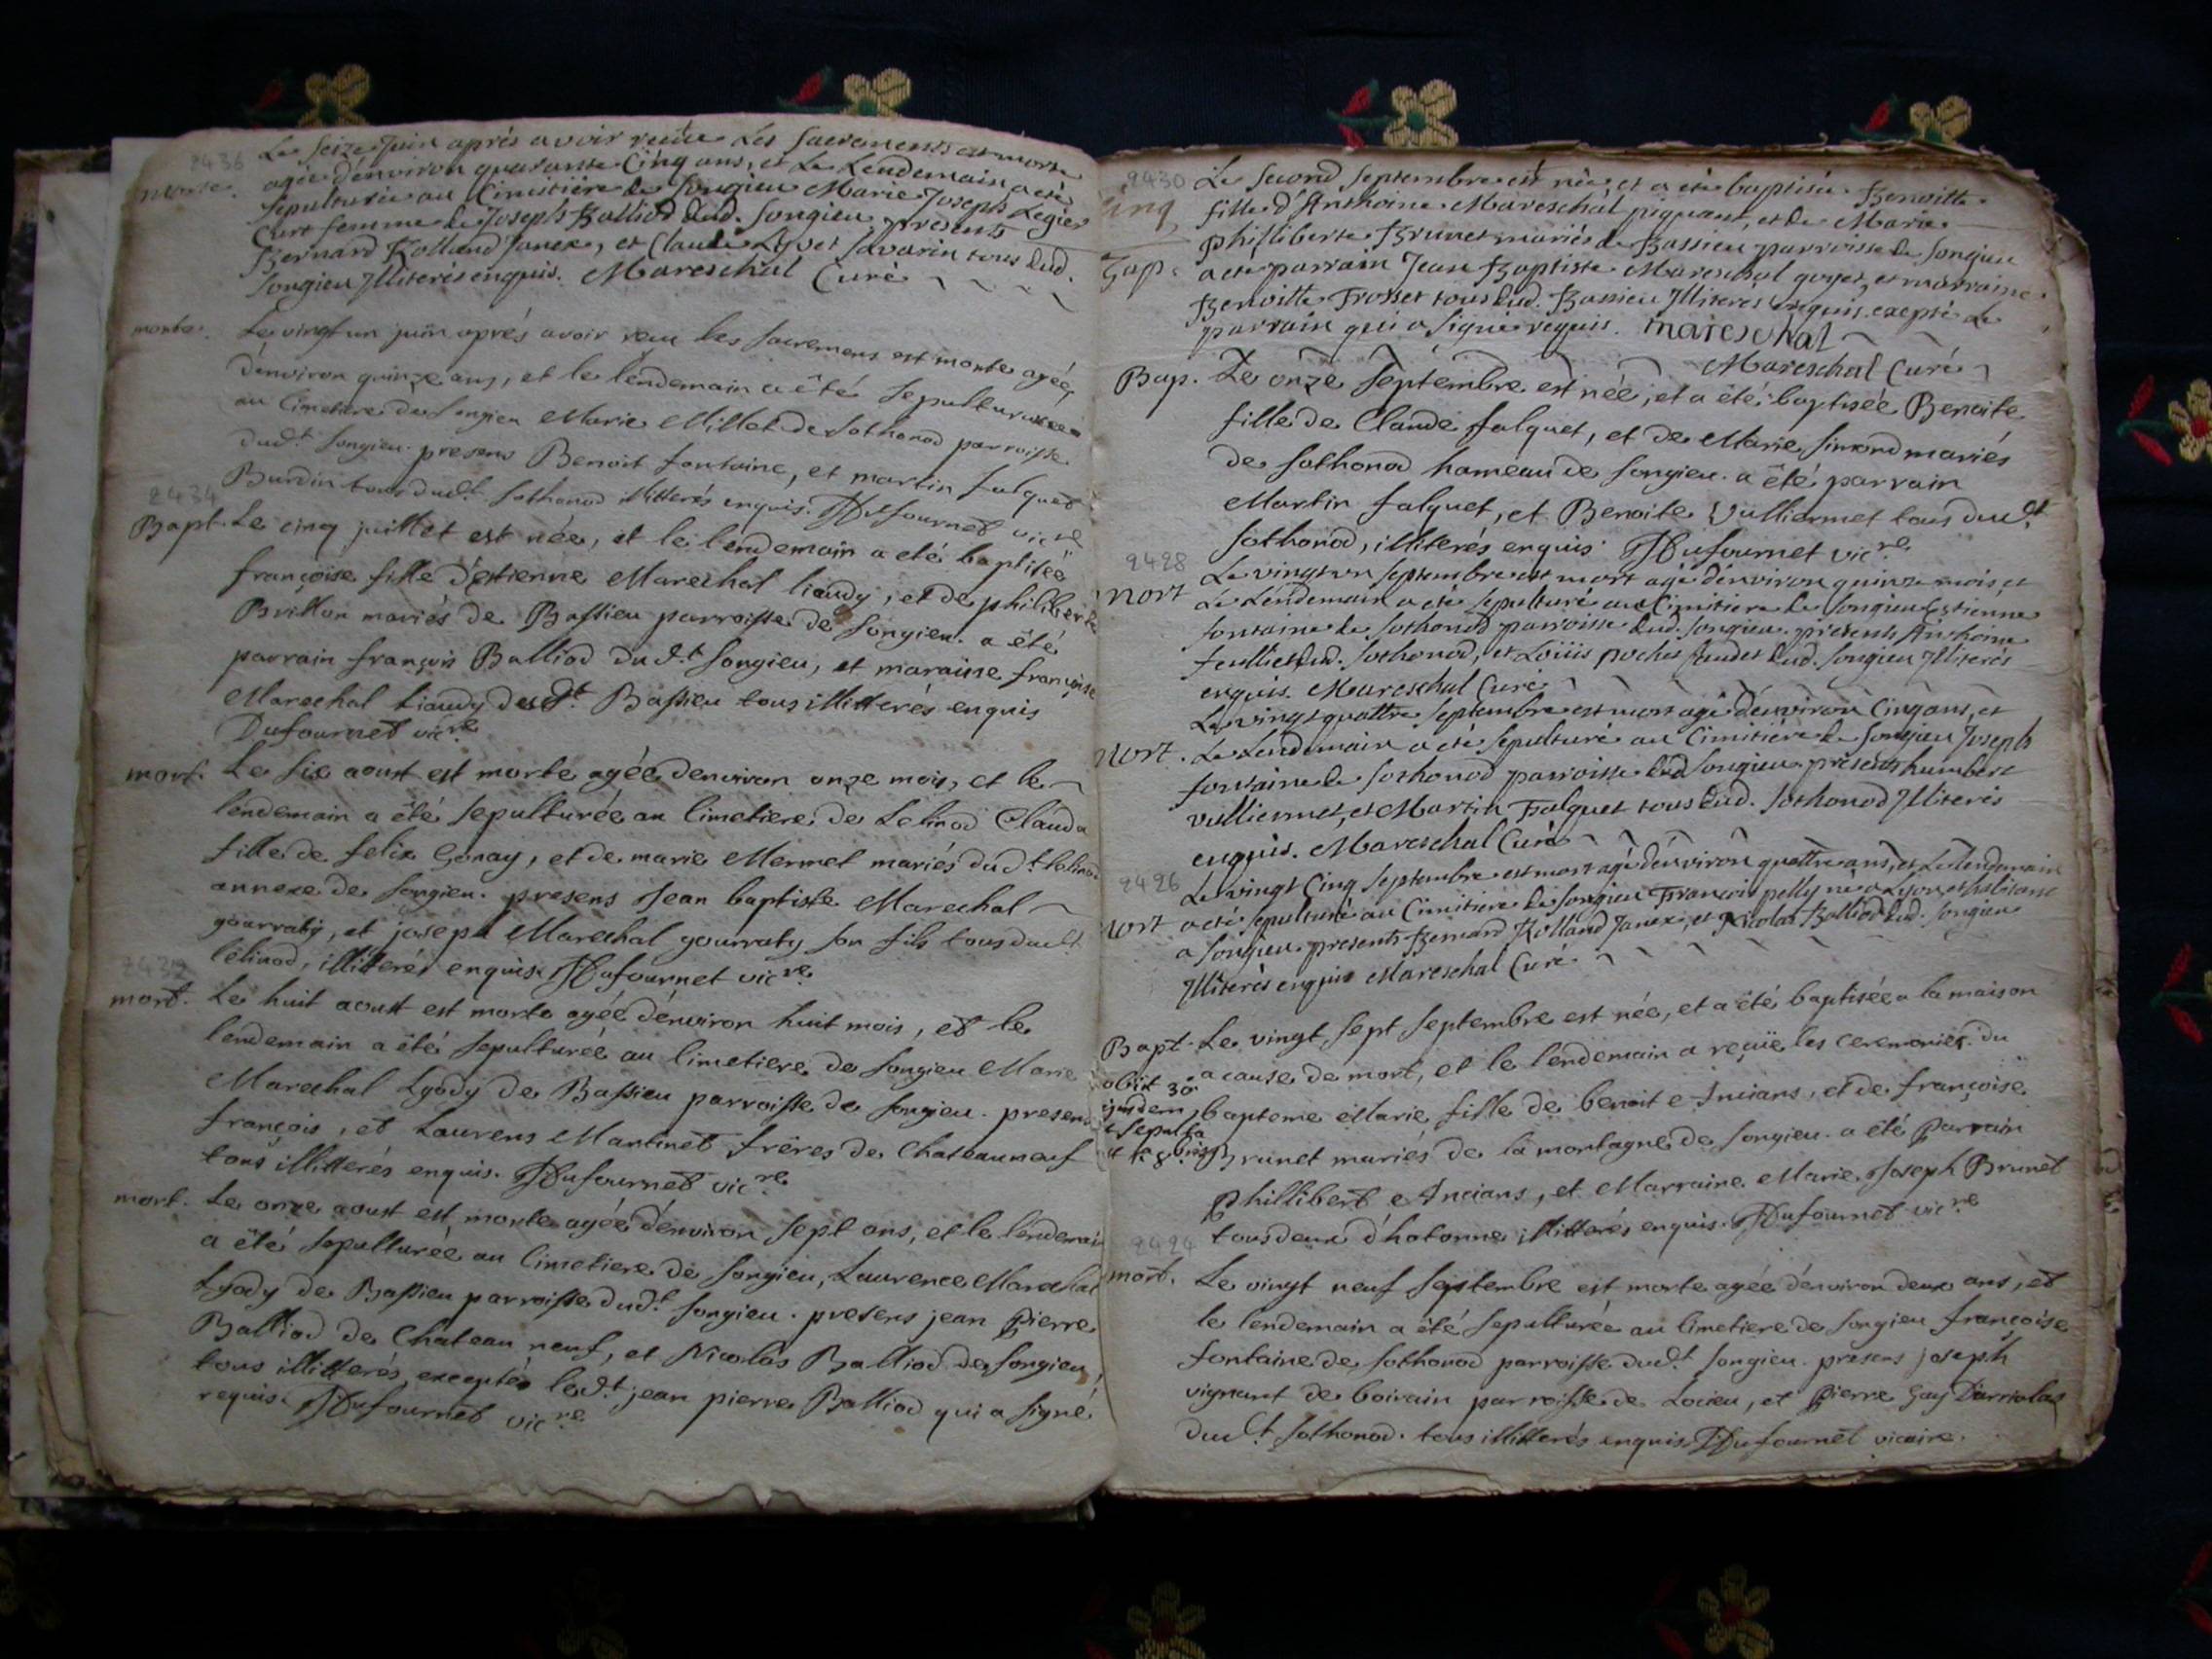 2436
Le seize juin après avoir reçüe Les sacrements est morte
morte. agée d'environ quarante Cinq ans, et Le Lendemain a eté
sepulturée au Cimitière de songieu Marie Joseph Legier
Curt femme de Joseph Balliod dud. songieu, présents
Bernard Rolland Janex, et Claude Lyvet savarin tous dud.
songieu Illiterés enquis. Mareschal Curé
morte. Le vingt un juin après avoir reçu les sacremens est morte agée
d'environ quinze ans, et le lendemain a été sepulturée
au Cimetiere de songieu Marie Millet de sothonod parroisse
dud.t songieu. presens Benoit fontaine, et martin falquet
Burdin tous dud.t sothonod illitterés enquis. Dufournet vic.re
2434
Bapt. Le cinq juillet est née, et le lendemain a eté baptisée
françoise fille d'estienne Marechal liaudy, et de philiberte
Brillon mariés de Bassieu parroisse de songieu. a été
parrain françois Balliod dud.t songieu, et maraine françoise
Marechal Liaudy dud.t Bassieu tous illitterés enquis
Dufournet vic.re
mort. Le six aoust est morte agée denviron onze mois, et le
lendemain a été sepulturée au cimetiere de Lelinod Clauda
fille de felix Gonay, et de marie Mermet mariés dud.t lelinod
annexe de songieu. presens Jean baptiste Marechal
gourraty, et joseph Marechal gourraty son fils tous dud.t
lelinod, illitterés enquis. Dufournet vic.re
2432
mort. Le huit aoust est morte agée d'environ huit mois, et le
lendemain a été sepulturée au cimetiere de songieu Marie
Marechal Lyody de Bassieu parroisse de songieu. presens
françois, et Laurens Martinet frères de Chateauneuf
tous illitterés enquis. Dufournet vic.re
mort. Le onze aoust est morte agée d'environ sept ans, et le lendemain
a été sepulturée au cimetiere de songieu, Laurence Marechal
Lyody de Bassieu parroisse dud.t songieu. presens jean Pierre
Balliod de Chateau neuf, et Nicolas Balliod de songieu,
tous illitterés exceptés led.t jean pierre Balliod qui a signé
requis. Dufournet vic.re
2430
Le second septembre est née et a été baptisée Benoitte
fille d'Anthoine Mareschal piquant, et de Marie
philiberte Brunet mariés de Bassieu parroisse de songieu
Bap. a eté parrain Jean Baptiste Mareschal goyet, et marraine
Benoitte Frosset tous dud. Bassieu Illiterés enquis. excepté Le
parrain qui a signé requis. mareschal
Mareschal Curé
Bap. Le onze septembre est née, et a été baptisée Benoite
fille de Claude falquet, et de Marie simond mariés
de sothonod haméau de songieu. a été parrain
Martin falquet, et Benoite Vulliermet tous dud.t
sothonod, illiterés enquis. Dufournet vic.re
2428
Le vingt un septembre est mort agé d'environ quinze mois, et
mort Le Lendemain a eté sepulturé au Cimitiere de songieu Estienne
fontaine de sothonod parroisse dud. songieu. présents Anthoine
feulliet dud. sothonod, et Loüis pochet Jandet dud. songieu Illiterés
enquis. Mareschal Curé
Le vingt quattre septembre est mort agé d'environ Cinq ans, et
mort. Le Lendemain a eté sepulturé au Cimitière de songieu Joseph
fontaine de sothonod parroisse dud songieu. présents humbert
vulliermet, et Martin Falquet tous dud. sothonod Illiterés
enquis. Mareschal Curé
2426
Le vingt Cinq septembre est mort agé d'environ quattre ans, et Le Lendemain
mort a eté sepulturé au Cimitiere de songieu François pelly né a Lyon et habitant
a songieu. presents Bernard Rolland Janex, et Nicolas Balliod dud. songieu
Illiterés enquis Mareschal Curé
Bapt. Le vingt sept septembre est née, et a été baptisée a la maison
a cause de mort, et le lendemain a reçüe les ceremonies du
obiit 30
ejusdem bapteme Marie fille de benoit e Ancians, et de françoise
et sepulta
Brunet mariés de la montagne de songieu. a été parrain
Phillibert e Ancians, et Marraine Marie Joseph Brunet
tous deux d'hotonne, illitterés enquis. Dufournet vic.re
2424
mort. Le vingt neuf septembre est morte agée d'environ deux ans, et
le lendemain a été sepulturée au cimetiere de songieu françoise
fontaine de sothonod parroisse dud.t songieu. presens joseph
vignant de boirain parroisse de Locieu, et Pierre Gay
dud.t sothonod. tous illitterés enquis. Dufournet vicaire.